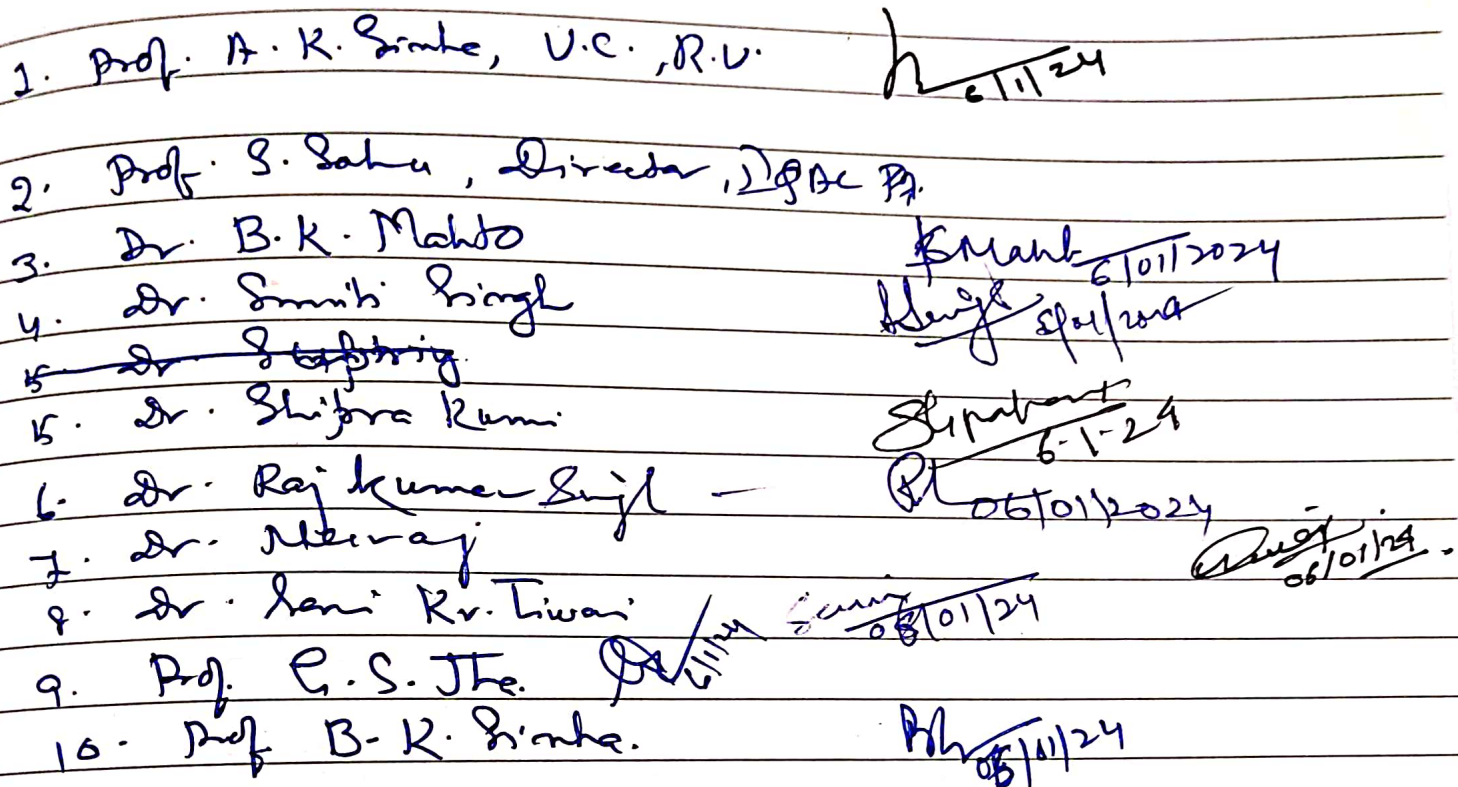 1. Prof. A. K. Sinha, V.C., R.U. 6/1/24
2. Prof. S. Sahu, Director, IQAC
3. Dr. B.K. Mahto 6/01/2024
4. Dr. Smriti Singh
5 Dr
5. Dr. Shipra Kumari 6-1-24
6. Dr. Raj Kumar Singh - 06/01/2024
7. Dr. Neeraj 06/01/24.
8. Dr. Sani Kr. Tiwari 06/01/24
9. Prof. G. S. Jha. 6/1/24
10. Prof B. K. Sinha. 06/01/24